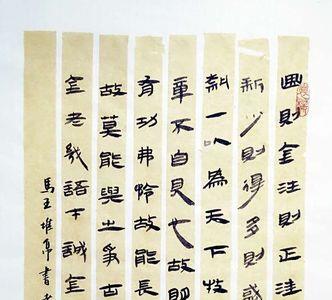 曲則金汪則正洼
新少則得多則惑
執一以為天下牧
章不自見也故明
有功弗矜故能長
故莫能與之爭古
金者幾語才誠金
馬王堆帛書老